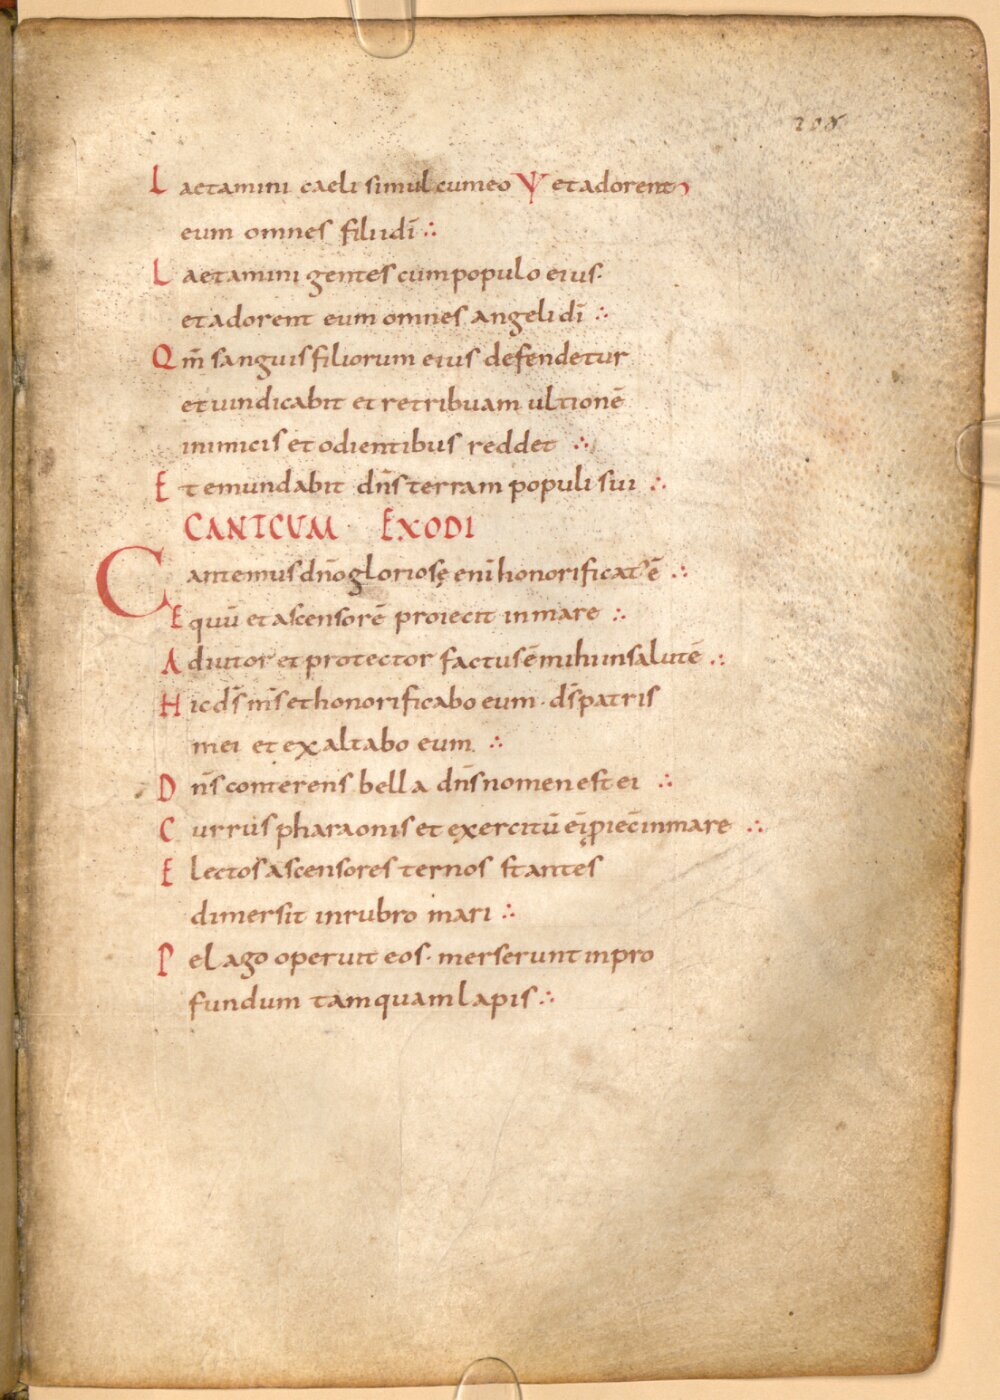 Laetamini caeli simul cum eo et adorent
eum omnes filii dī ∴
Laetamini gentes cum populo eius·
et adorent eum omnes angeli dī ∴
Qm̄ sanguis filiorum eius defendetur
et uindicabit et retribuam ultionē
inimicis et odientibus reddet ∴
Et emundabit dn̄s terram populi sui ∴
CANTCUM EXODI
Cantemus dn̄o gloriosę enī honorificat' ē ∴
Equū et ascensorē proiecit in mare ∴
Adiutor et protector factus ē mihi in salutē ∴
Hic d̄s m̄s et honorificabo eum · d̄s patris
mei et exaltabo eum ∴
Dn̄s conterens bella dn̄s nomen est ei ∴
Currus pharaonis et exercitū ei' ꝓiec̄ in mare ∴
Electos ascensores ternos stantes
dimersit in rubro mari ∴
Pelago operuit eos · merserunt in pro
fundum tamquam lapis ∴